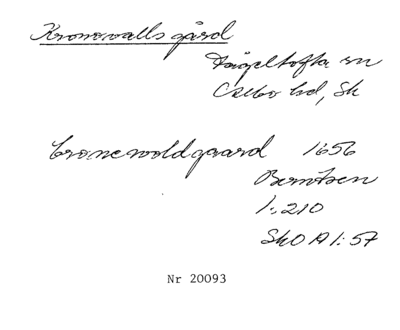 Kronovalls gård
Fågeltofta sn
Albo hd, Sk
Cronevoldgaard 1656
Berntsen
1:210
SkO A1:57
Nr 20093